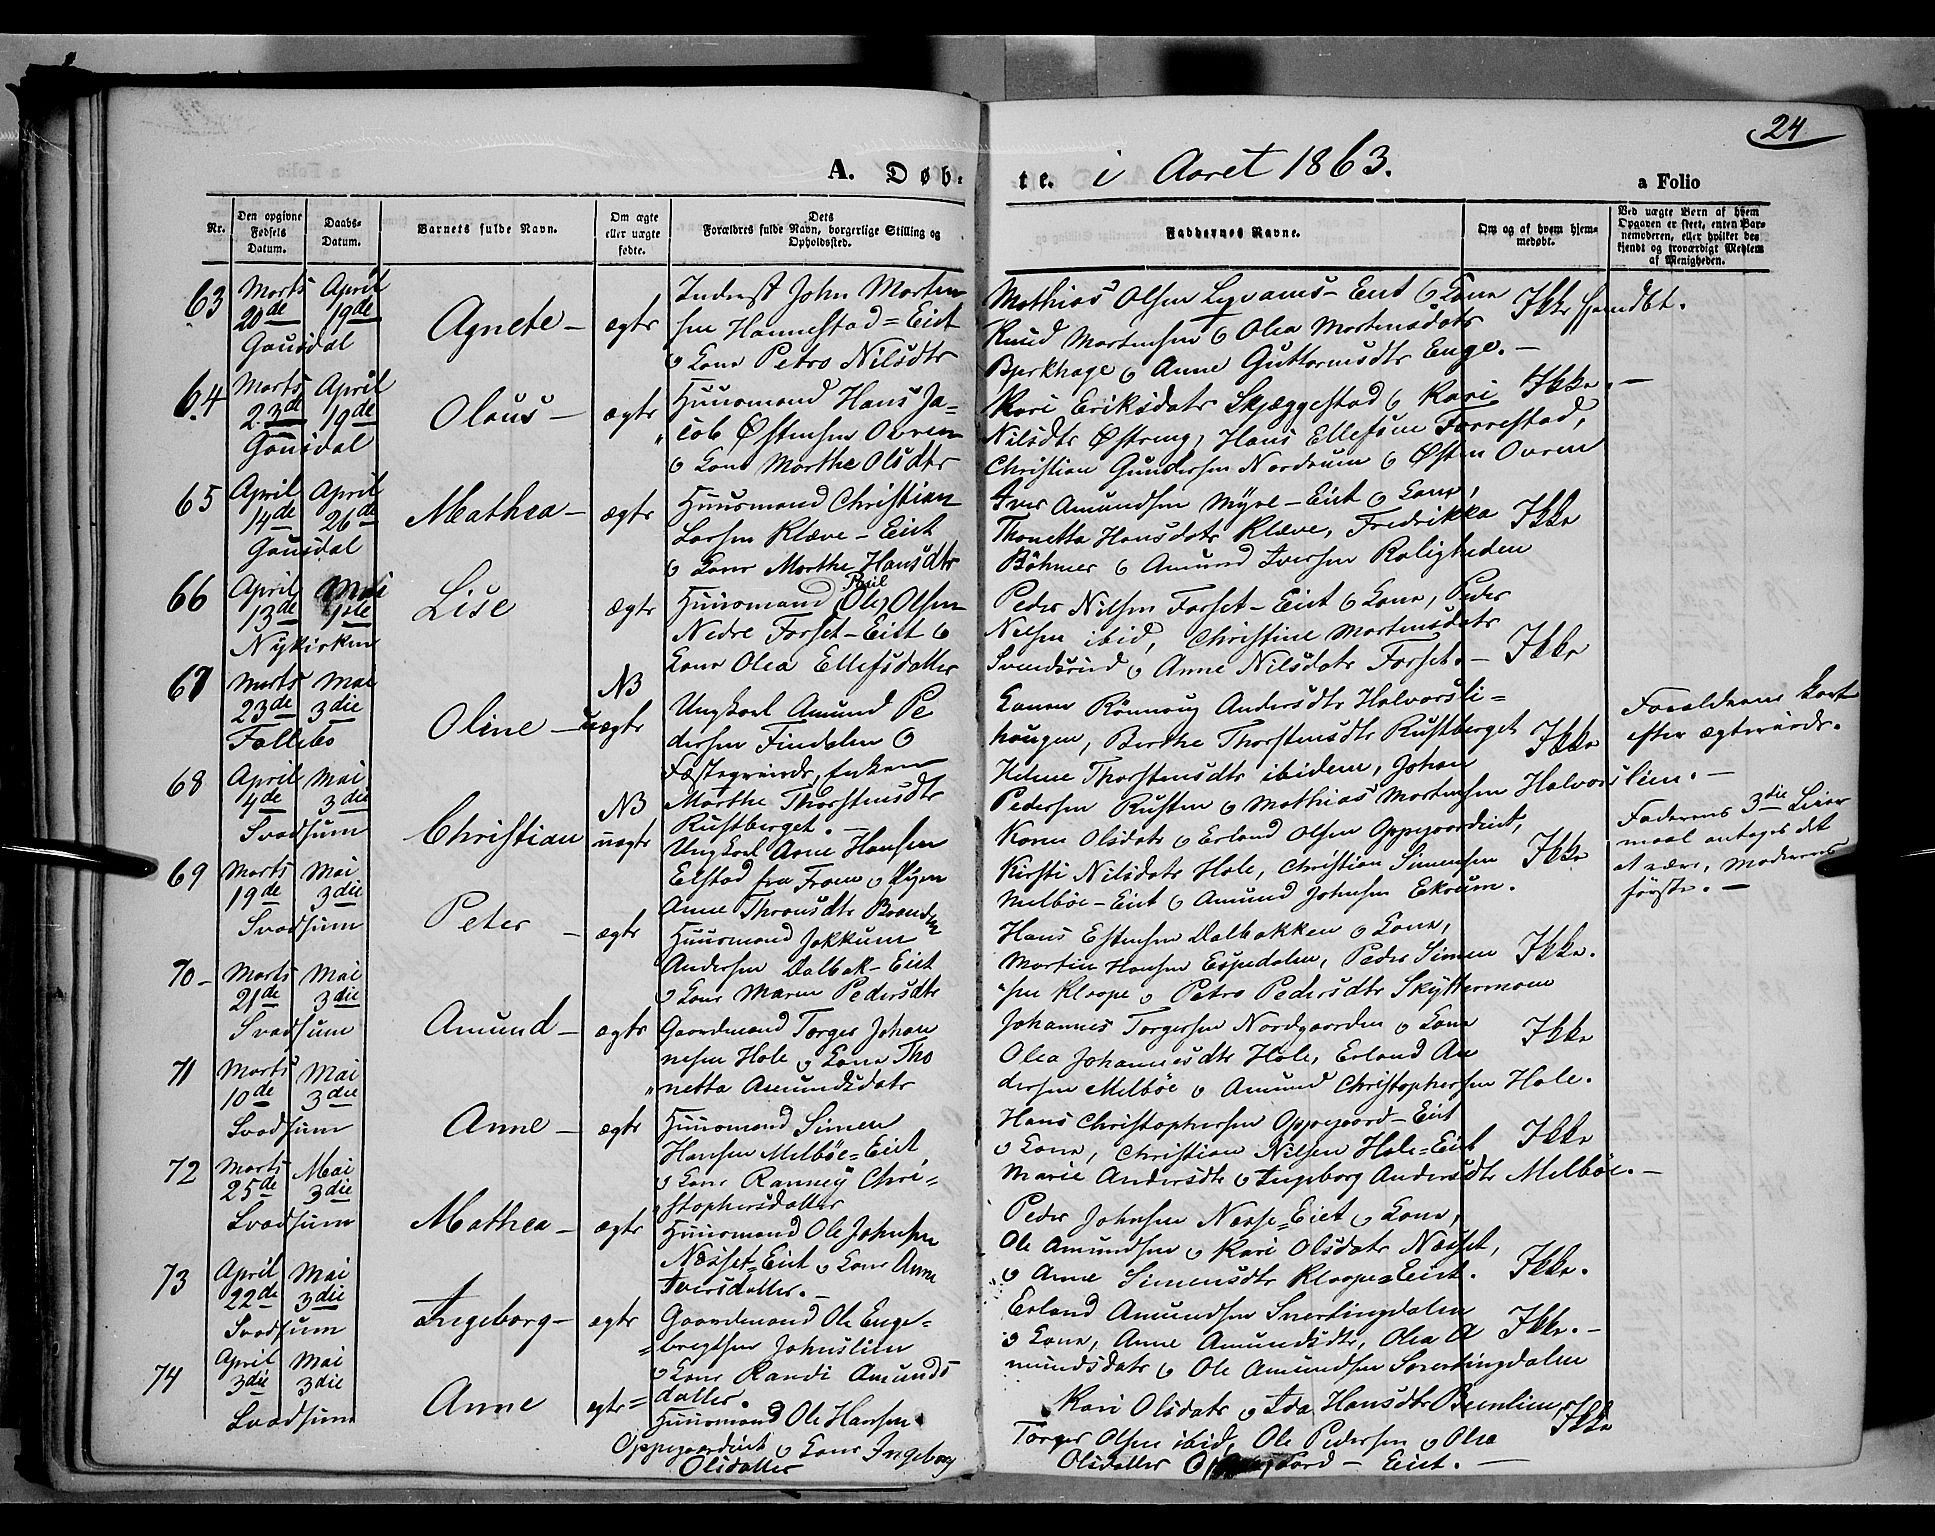 24
A. Døb-
te. i Aaret 1863.
a Folio
Nr.
Den opgivne
Fødsels
Datum.
Daabs-
Datum.
Barnets fulde Navn.
Om ægte
eller uægte
fødte.
Dets
Forældres fulde Navn, borgerlige Stilling og
Opholdssted.
Faddernes Navne.
Om og af hvem hjem-
medøbt.
Ved uægte Børn af hvem
Opgaven er skeet, enten Bar-
nemoderen, eller hvilket der
kjendt og troværdigt Medlem
af Menigheden.
63
Marts April
20de 19de
Gausdal
Agnete - ægte
Inderst John Morten
sen Hannestad = Eiet
o Kone Petra Nilsdtr
Mathias Olsen - Eiet o Kone
Knud Mortensen o Olea Mortensdatr
Bjerkhage o Anne Guttormsdtr Enge. -
Ikke hjemdbt.
64
Marts April
23de 19de
Gausdal
Olaus - ægte
Huusmand Hans Ja-
cob Østensen Ovren
o Kone Marthe Olsdtr
Kari Eriksdatr Skjæggestad o Kari
Nilsdtr Østreng, Hans Ellefsen Forrestad,
Christian Gundersen Nordrum o Østen Ovren
Ikke. -
65
April April
14de 26de
Gausdal
Mathea - ægte
Huusmand Christian
Larsen Kleve - Eiet
o Kone Marthe Hansdtr
Iver Amundsen Myre - Eiet o Kone,
Thonetta Hansdatr Klæve, Fredrikka
Böhmer o Amund Iversen Roligheden
Ikke
66
April Mai
13de 1ste
Nykirken
Lise ægte
Huusmand (Ole) Poul Olsen
Nedre Forset - Eiet o
Kone Olea Ellefsdatter
Peder Nilsen Forset - Eiet o Kone, Peder
Nilsen ibid, Christine Mortensdatr
Svendsrud o Anne Nilsdatr Forset. -
Ikke
67
Marts Mai
23de 3die
Follebo
Oline - NB uægte
Ungkarl Amund Pe
dersen Findalen o
Fæstegvinde, Enken
Marthe Thorstensdtr
Rustberget. -
Konen Rönnoug Andersdtr Halvorsli-
haugen, Berthe Thorstensdtr Rustberget
Helene Thorstensdtr ibidem, Johan
Pedersen Rusten o Mathias Mortensen Halvorslien. -
Ikke
Forældrene kort
efter ægteviede.
68
April Mai
4de 3die
Svadsum
Christian NB uægte
Ungkarl Arne Hansen
Elstad fra Fron o Pigen
Anne Thronsdtr Branden
Karen Olsdatr o Erland Olsen Oppegaardeiet,
Kirsti Nilsdatr Hole, Christian Simensen
Melböe - Eiet o Amund Johnsen Ekrum.
Ikke
Faderens 3die Leier
maal antages det
at være, Moderens
første. -
69
Marts Mai
19de 3die
Svadsum
Peter - ægte
Huusmand Jokkum
Andersen Dalbak - Eiet
o Kone Maren Pedersdtr
Hans Estensen Dalbakken o Kone,
Martin Hansen Espedalen, Peder Simen
sen Kloope o Petra Pedersdtr Skyttermoen
Ikke.
70 -
Marts Mai
21de 3die
Svadsum
Amund - ægte
Gaardmand Torger Johan
nesen Hole o Kone Tho
netta Amundsdatr
Johannes Torgersen Nordgaarden o Kone
Olea Johannesdtr Hole, Erland An
dersen Melböe o Amund Christophersen Hole.
Ikke
71
Marts Mai
10de 3die
Svadsum
Anne - ægte
Huusmand Simen
Hansen Melböe = Eiet,
o Kone Ranney Chri-
stophersdatter
Hans Christophersen Oppegaard - Eiet
o Kone, Christian Nilsen Hole = Eiet
Marie Andersdtr o Ingeborg Andersdtr Melböe. -
Ikke
72
Marts Mai
25de 3die
Svadsum
Mathea - ægte
Huusmand Ole Johnsen
Næsset = Eiet o Kone Anne
Iversdatter. -
Peder Johnsen Nesse = Eiet o Kone,
Ole Amundsen o Kari Olsdatr Næsset,
o Anne Simensdtr Kloope = Eiet.
Ikke.
73
April Mai
22de 3die
Svadsum
Ingeborg - ægte
Gaardmand Ole Enge-
bregtsen Johnslien
o Kone Randi Amunds
datter.
Erland Amundsen Svertingdalen
o Kone, Anne Amundsdtr, Olea A
mundsdatr o Ole Amundsen Svertingdalen
Ikke. -
74
April Mai
3die 3die
Svadsum
Anne ægte =
Huusmand Ole Hansen
Oppegaardeiet o Kone Ingeborg
Olsdatter
Kari Olsdatr o Ida Hansdtr
Torger Olsen ibid, Ole Pedersen o Olea
Olsdatter - Eiet. -
Ikke